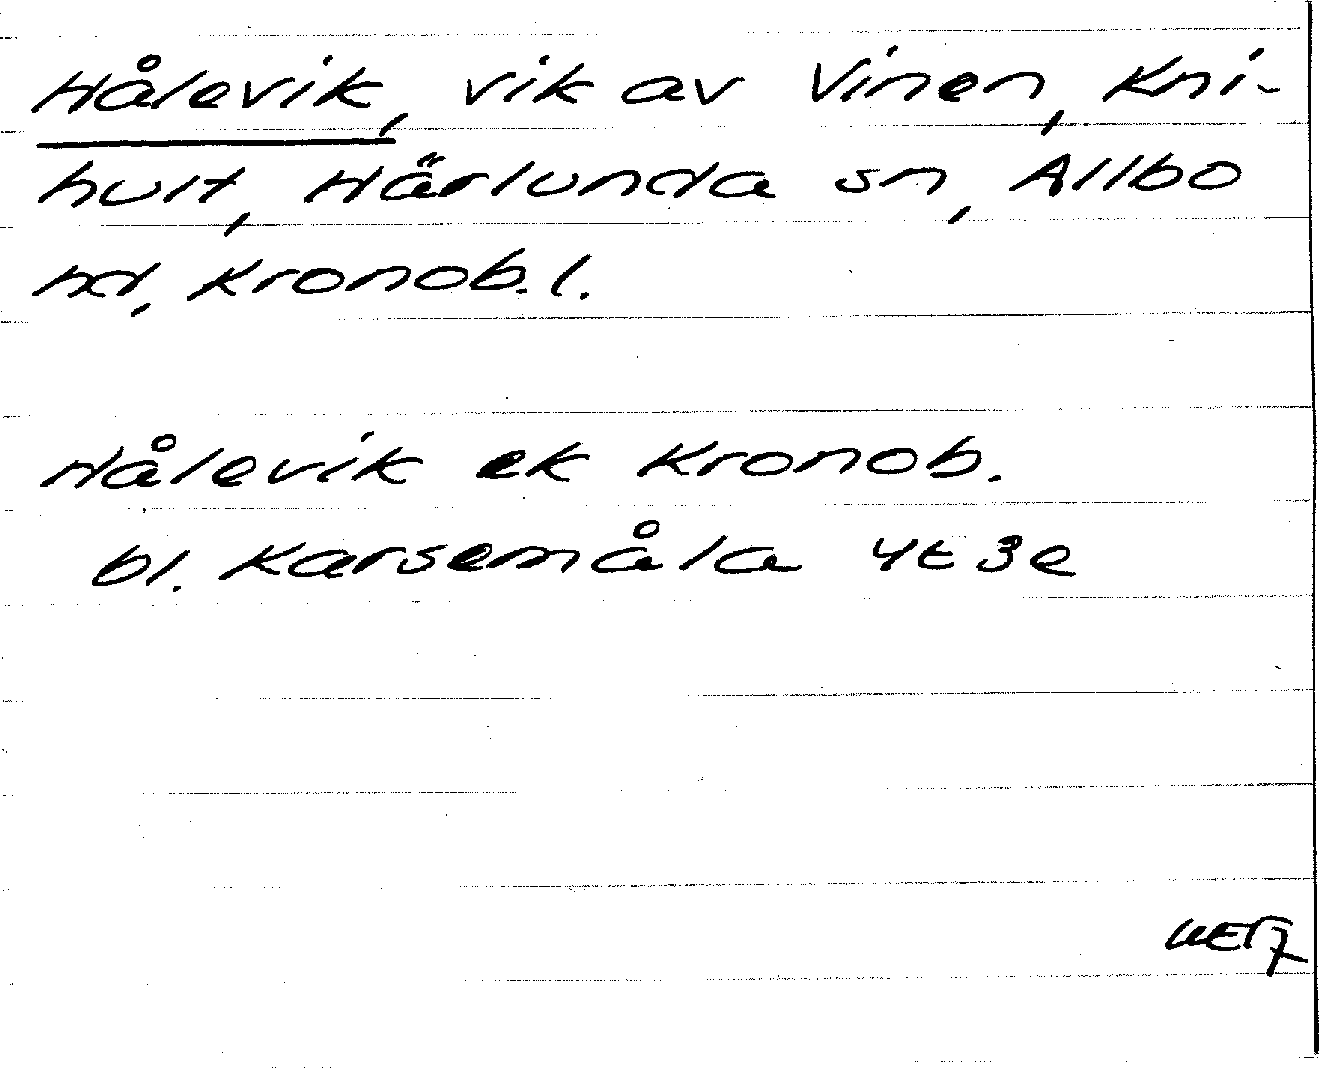 Hålevik, vik av Vinen, Kni-
hult, Härlunda sn, Allbo
hd, Kronob. l.
Hålevik ek Kronob.
bl. Karsemåla 4E 3e